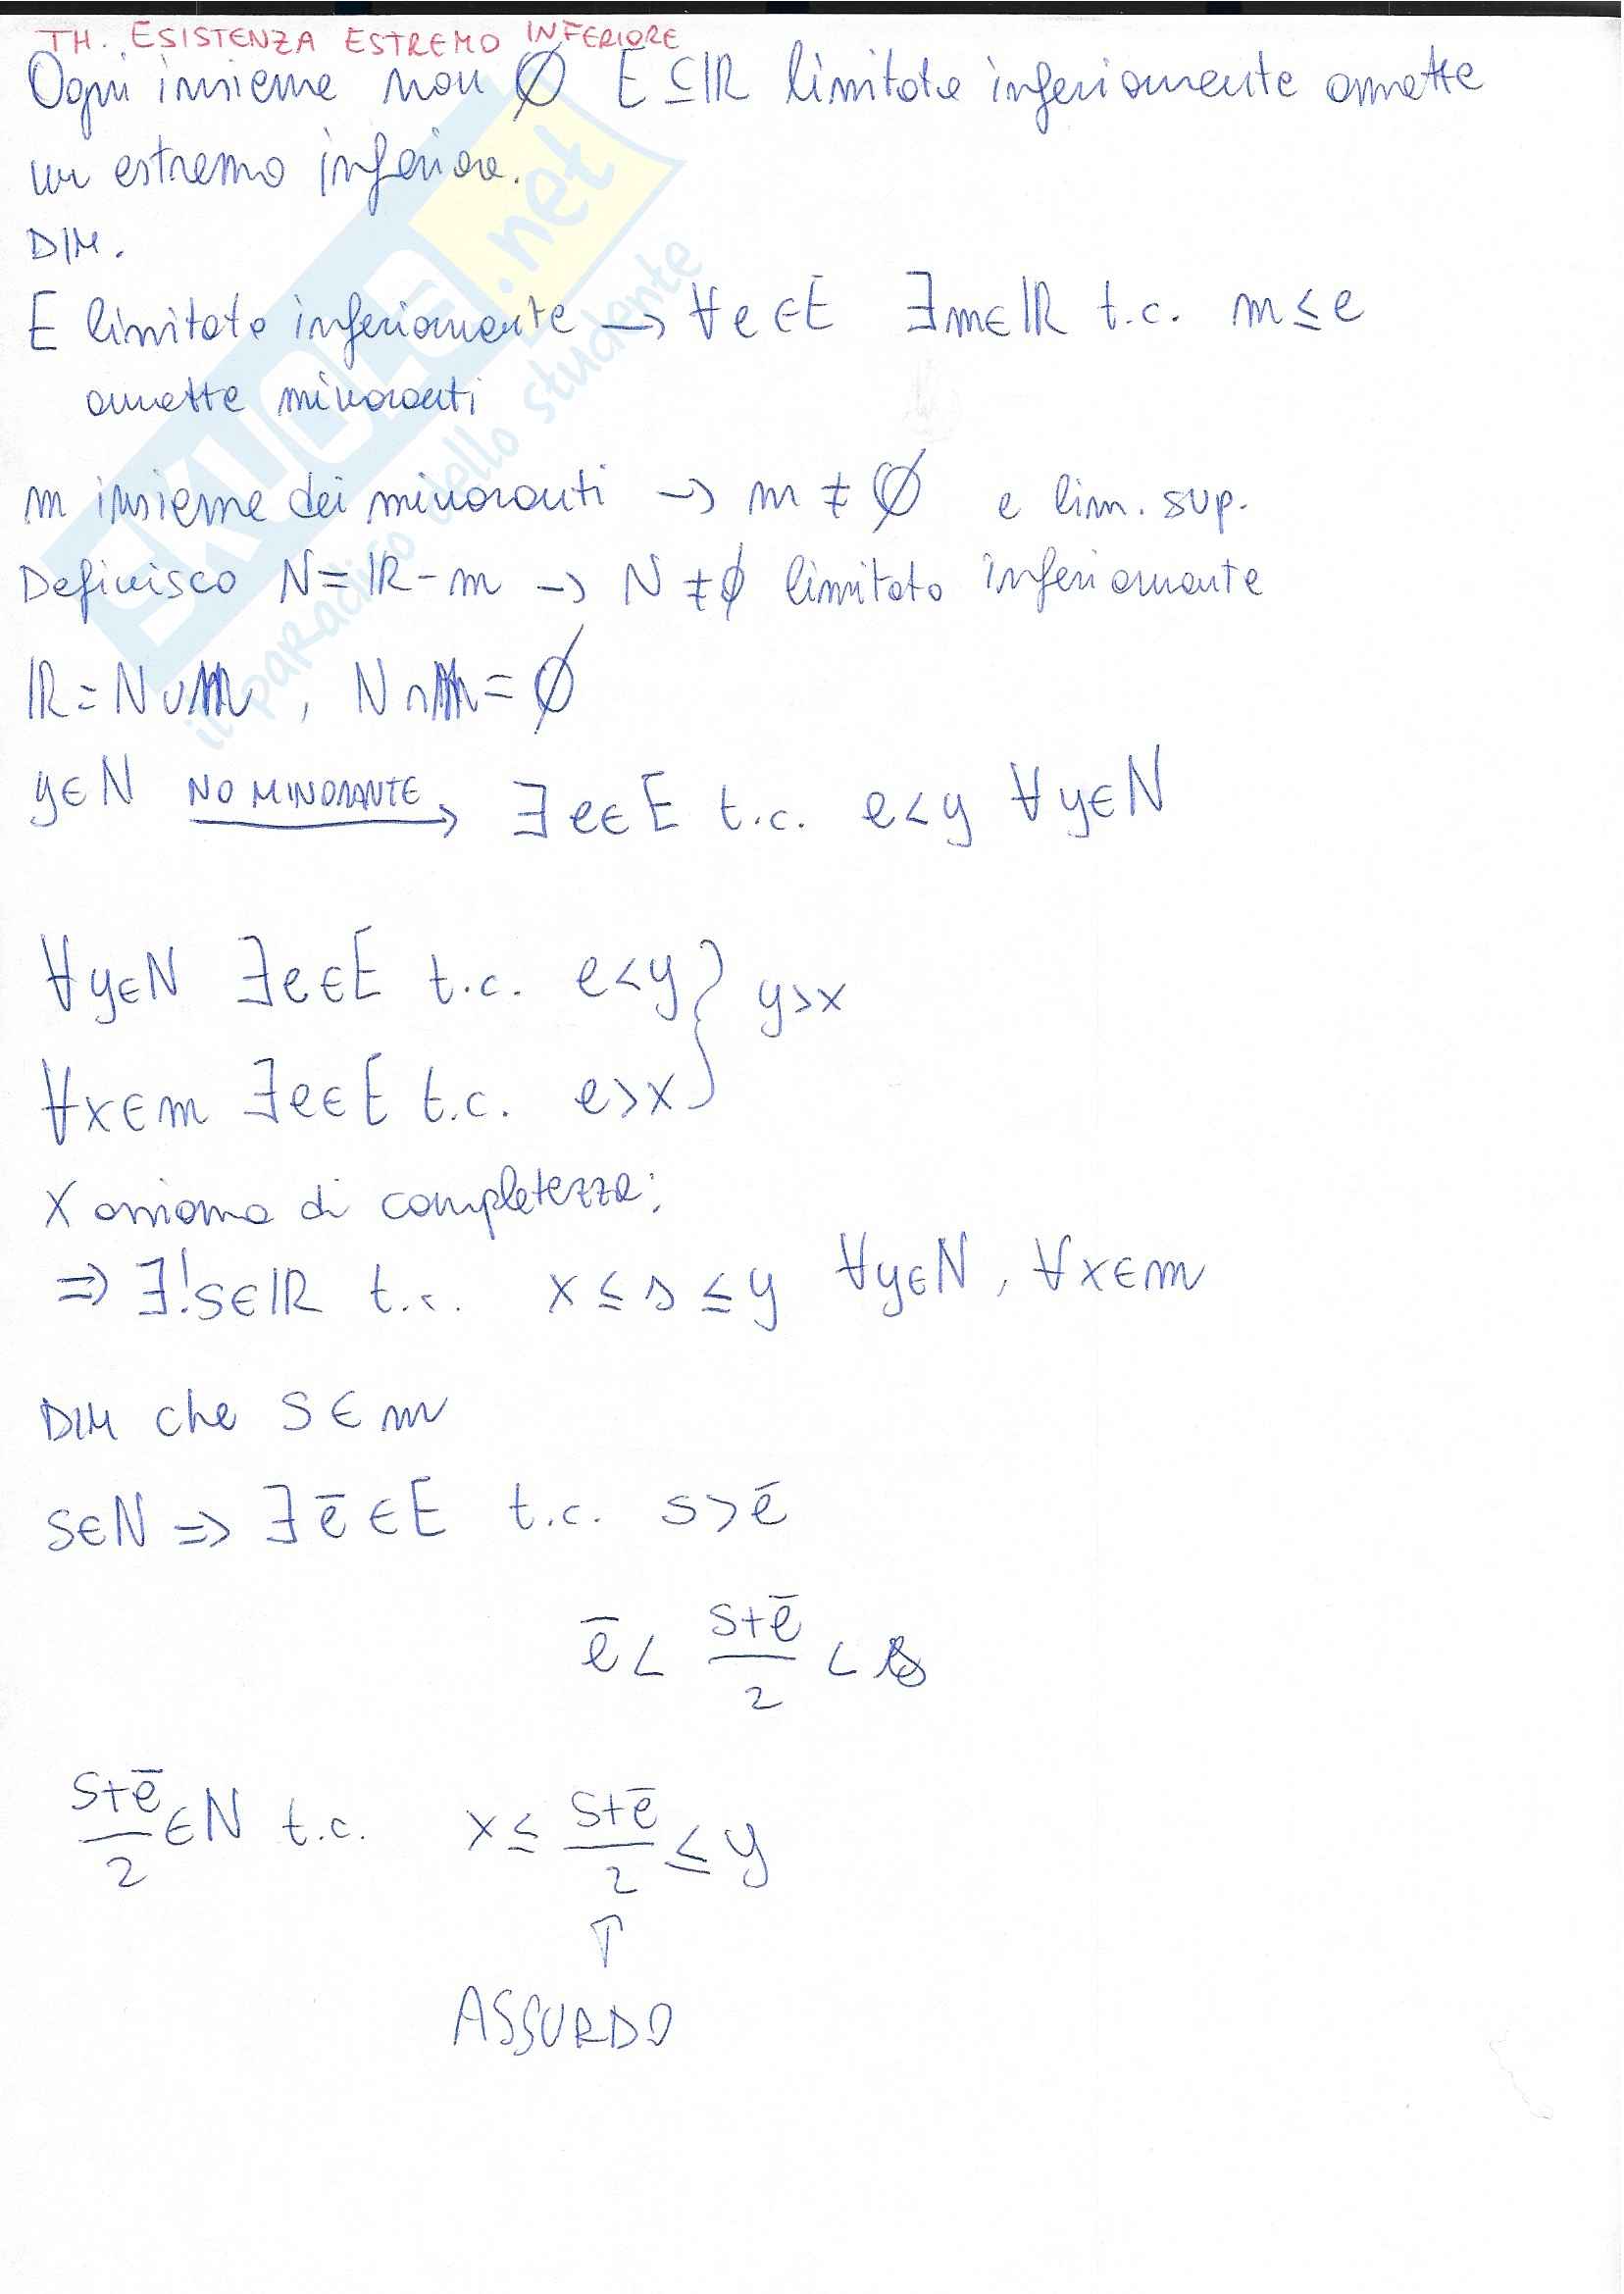 TH. ESISTENZA ESTREMO INFERIORE
Ogni insieme non ∅ E ⊆ ℝ limitato inferiormente ammette
un estremo inferiore.
DIM.
E limitato inferiormente → ∀ e ∈ E ∃ m ∈ ℝ t.c. m ≤ e
ammette minoranti
m insieme dei minoranti → m ≠ ∅ e lim. sup.
Definisco N = ℝ - m → N ≠ ∅ limitato inferiormente
ℝ = N ∪ M , N ∩ M = ∅
y ∈ N NO MINORANTE → ∃ e ∈ E t.c. e < y ∀ y ∈ N
∀ y ∈ N ∃ e ∈ E t.c. e < y } y > x
∀ x ∈ m ∃ e ∈ E t.c. e > x
X assioma di completezza:
⇒ ∃! s ∈ ℝ t.c. x ≤ s ≤ y ∀ y ∈ N, ∀ x ∈ m
DIM che s ∈ m
s ∈ N ⇒ ∃ ē ∈ E t.c. s > ē
ē < (s+ē)/2 < s
(s+ē)/2 ∈ N t.c. x ≤ (s+ē)/2 ≤ y
↑
ASSURDO
SKUOLA.net
il paradiso dello studente